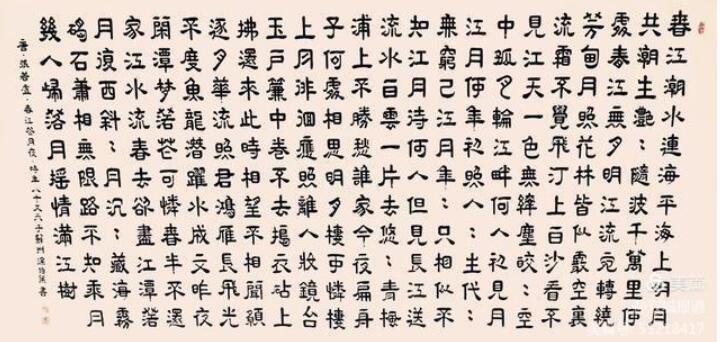 春江潮水連海平海上明月
共潮生灩：隨波千萬里何
處春江無月明江流宛轉繞
芳甸月照花林皆似霰空裏
流霜不覺飛汀上白沙看不
見江天一色無纖塵皎：空
中孤月輪江畔何人初見月
江月何年初照人：生代：
無窮已江月年：只相似不
知江月待何人但見長江送
流水白雲一片去悠：青楓
浦上不勝愁誰家今夜扁舟
子何處相思明月樓可憐樓
上月徘徊應照離人妝鏡台
玉戶簾中卷不去搗衣砧上
拂還來此時相望不相聞願
逐月華流照君鴻雁長飛光
不度魚龍潛躍水成文昨夜
閑潭夢落花可憐春半不還
家江水流春去欲盡江潭落
月復西斜：月沉：藏海霧
碣石蕭相無限路不知乘月
幾人歸落月搖情滿江樹
唐·張若虛·春江花月夜·時年八十又六于蘇州書
美篇